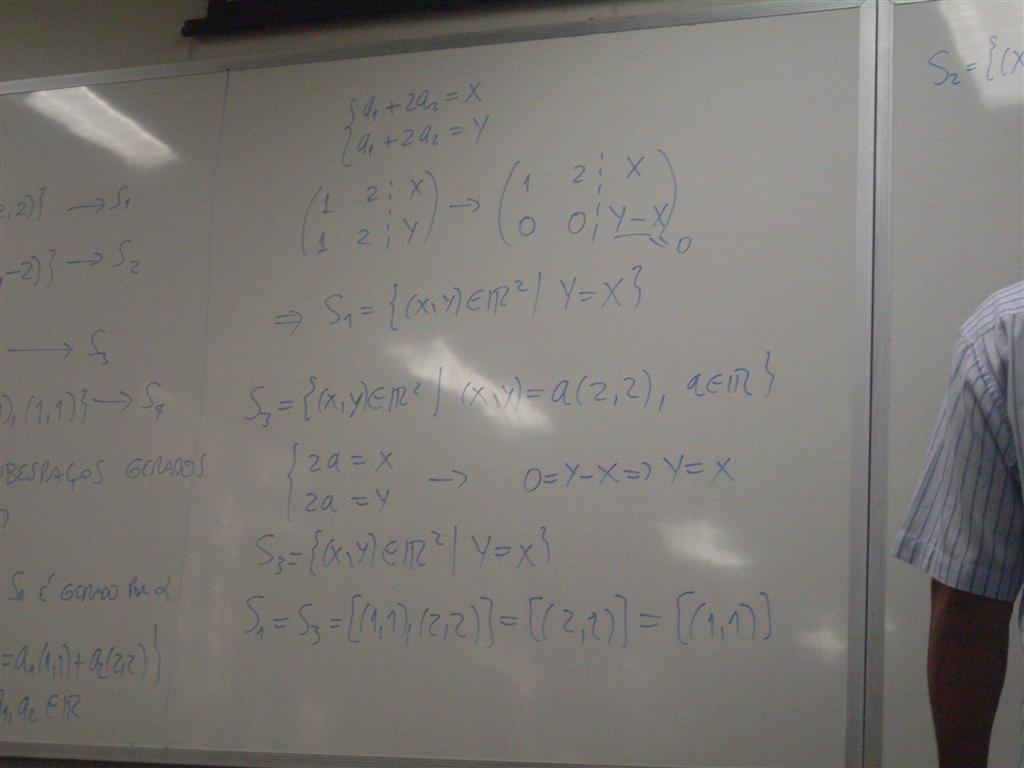 2,2)} → S1
,-2)} → S2
→ S3
), (1,1)} → S4
BESPAÇOS GERADOS
S1 É GERADO POR α.
= a1(1,1) + a2(2,2)}
a1, a2 ∈ ℝ
{ a1 + 2a2 = X
a1 + 2a2 = Y
( 1 2 ¦ X ) → ( 1 2 ¦ X )
( 1 2 ¦ Y ) ( 0 0 ¦ Y-X ) → 0
⇒ S1 = {(X,Y) ∈ ℝ² | Y = X}
S3 = {(X,Y) ∈ ℝ² | (X,Y) = a(2,2), a ∈ ℝ}
{ 2a = X
2a = Y → 0 = Y-X ⇒ Y = X
S3 = {(X,Y) ∈ ℝ² | Y = X}
S1 = S3 = [(1,1),(2,2)] = [(2,2)] = [(1,1)]
S2 = {(X